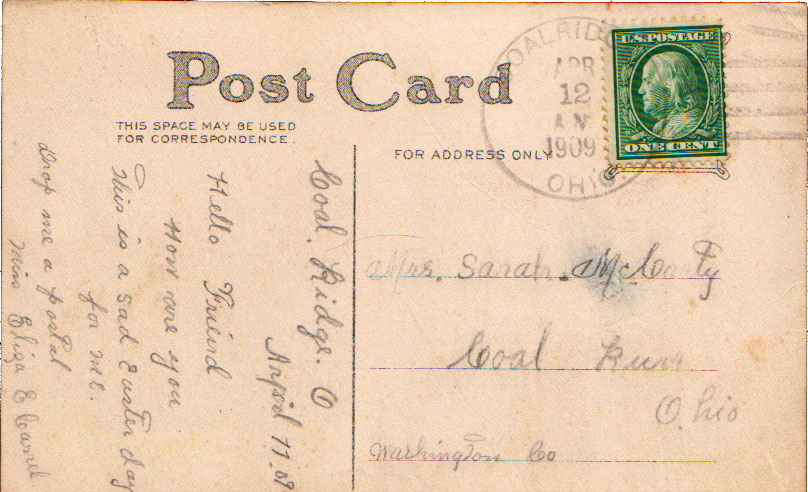 Post Card
THIS SPACE MAY BE USED
FOR CORRESPONDENCE.
FOR ADDRESS ONLY
U.S. POSTAGE
ONE CENT
COALRID
APR
12
1909
OHIO
Coal Ridge. O
April 11. 09
Hello Friend
How are you
This is a sad Easter day
for me.
Drop me a postal
Miss Eliza E
Mrs. Sarah. McCarty
Coal Run
Ohio
Washington Co